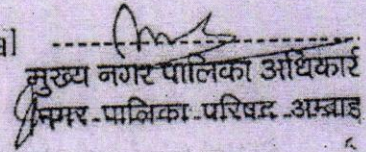 a]
मुख्य नगर पालिका अधिकारी
नगर-पालिका-परिषद-अम्बाह